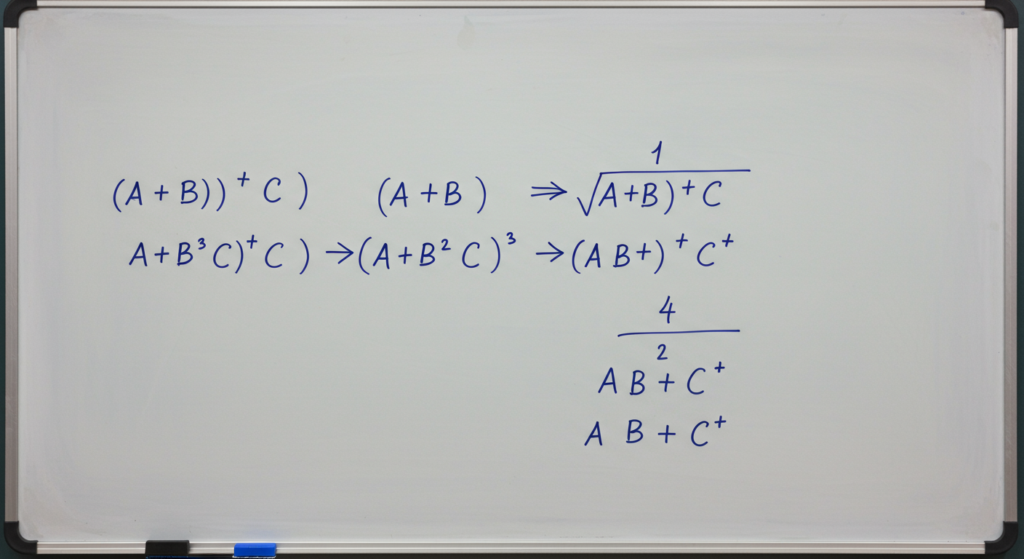 1
(A + B))⁺ C ) (A + B ) ⇒ √A+B)⁺ C
A+B³ C)⁺ C ) → (A+B² C )³ → (A B+)⁺ C⁺
4
2
A B + C⁺
A B + C⁺